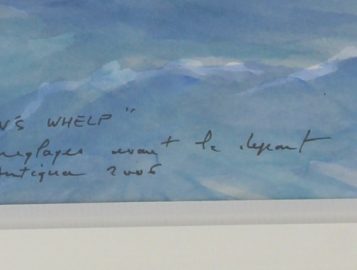 N'S WHELP"
reglages avant le depart
Antigua 2006